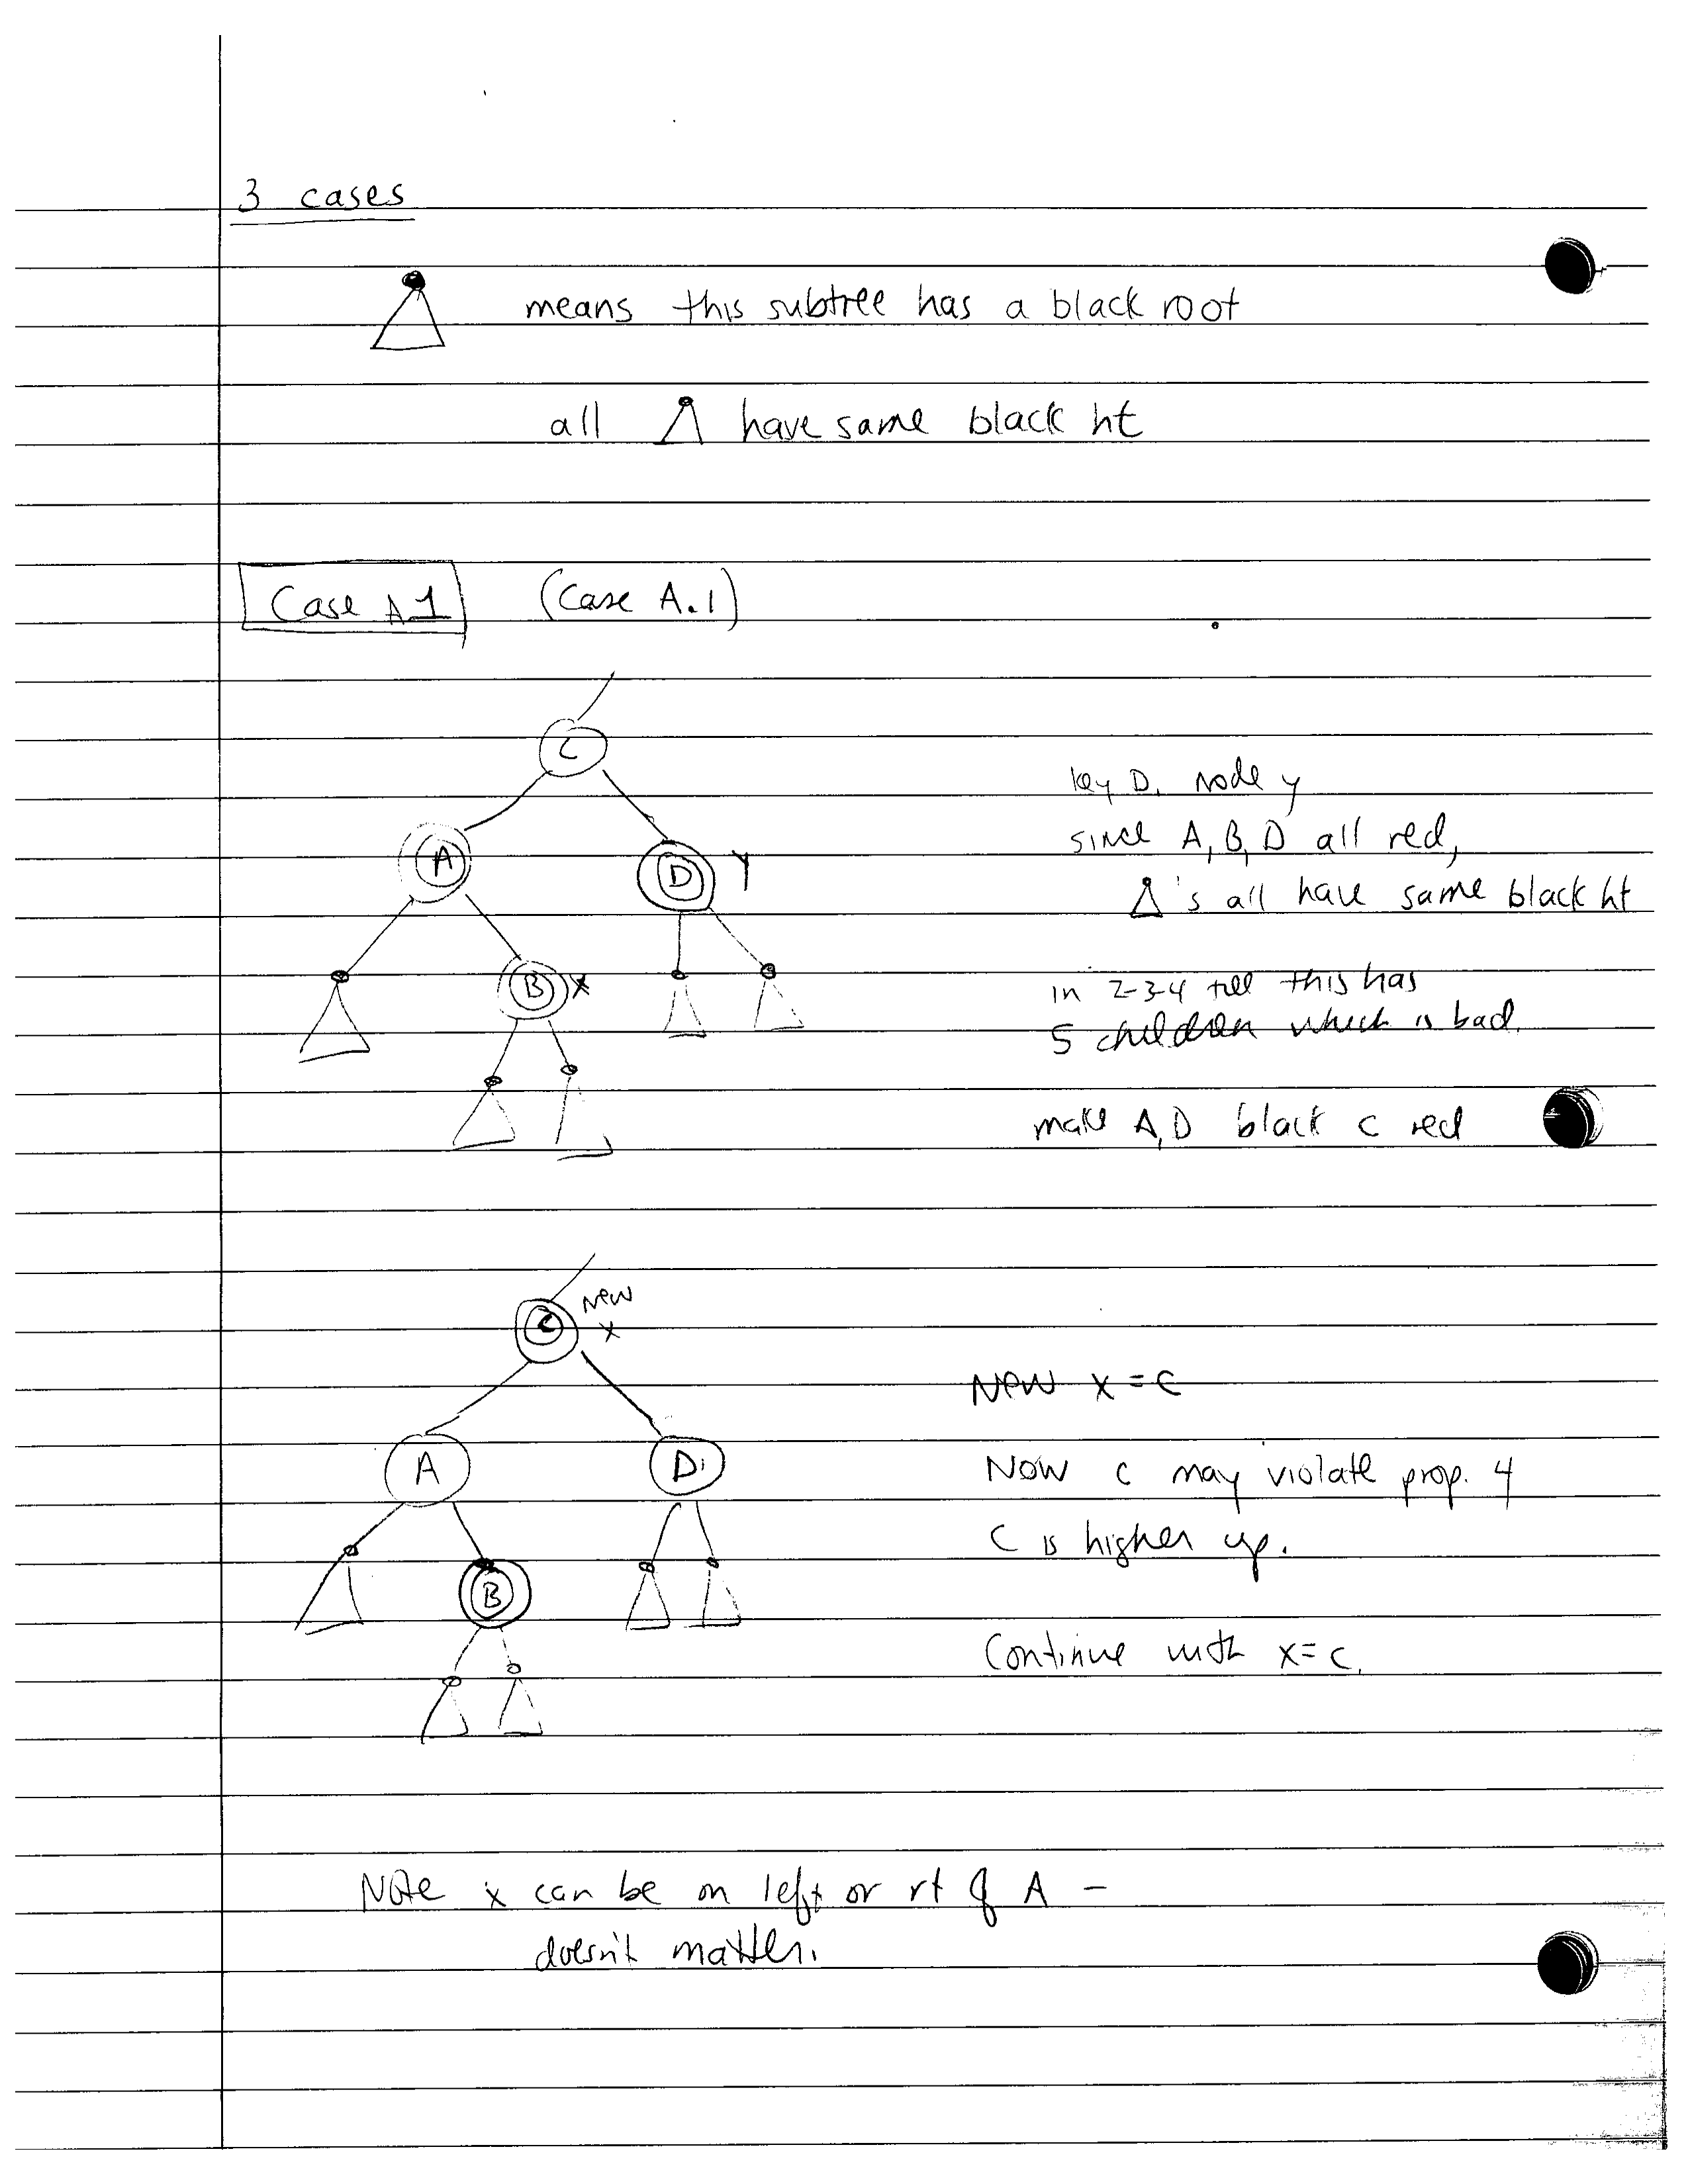 3 cases
means this subtree has a black root
all have same black ht
Case A1 (Case A.1)
C
key D. node y
since A, B, D all red,
A D y
's all have same black ht
B x
in 2-3-4 tree this has
5 children which is bad.
make A, D black C red
C new x
New x = c
A D
Now c may violate prop. 4
C is higher up.
B
Continue with x = c.
Note x can be on left or rt of A -
doesn't matter.